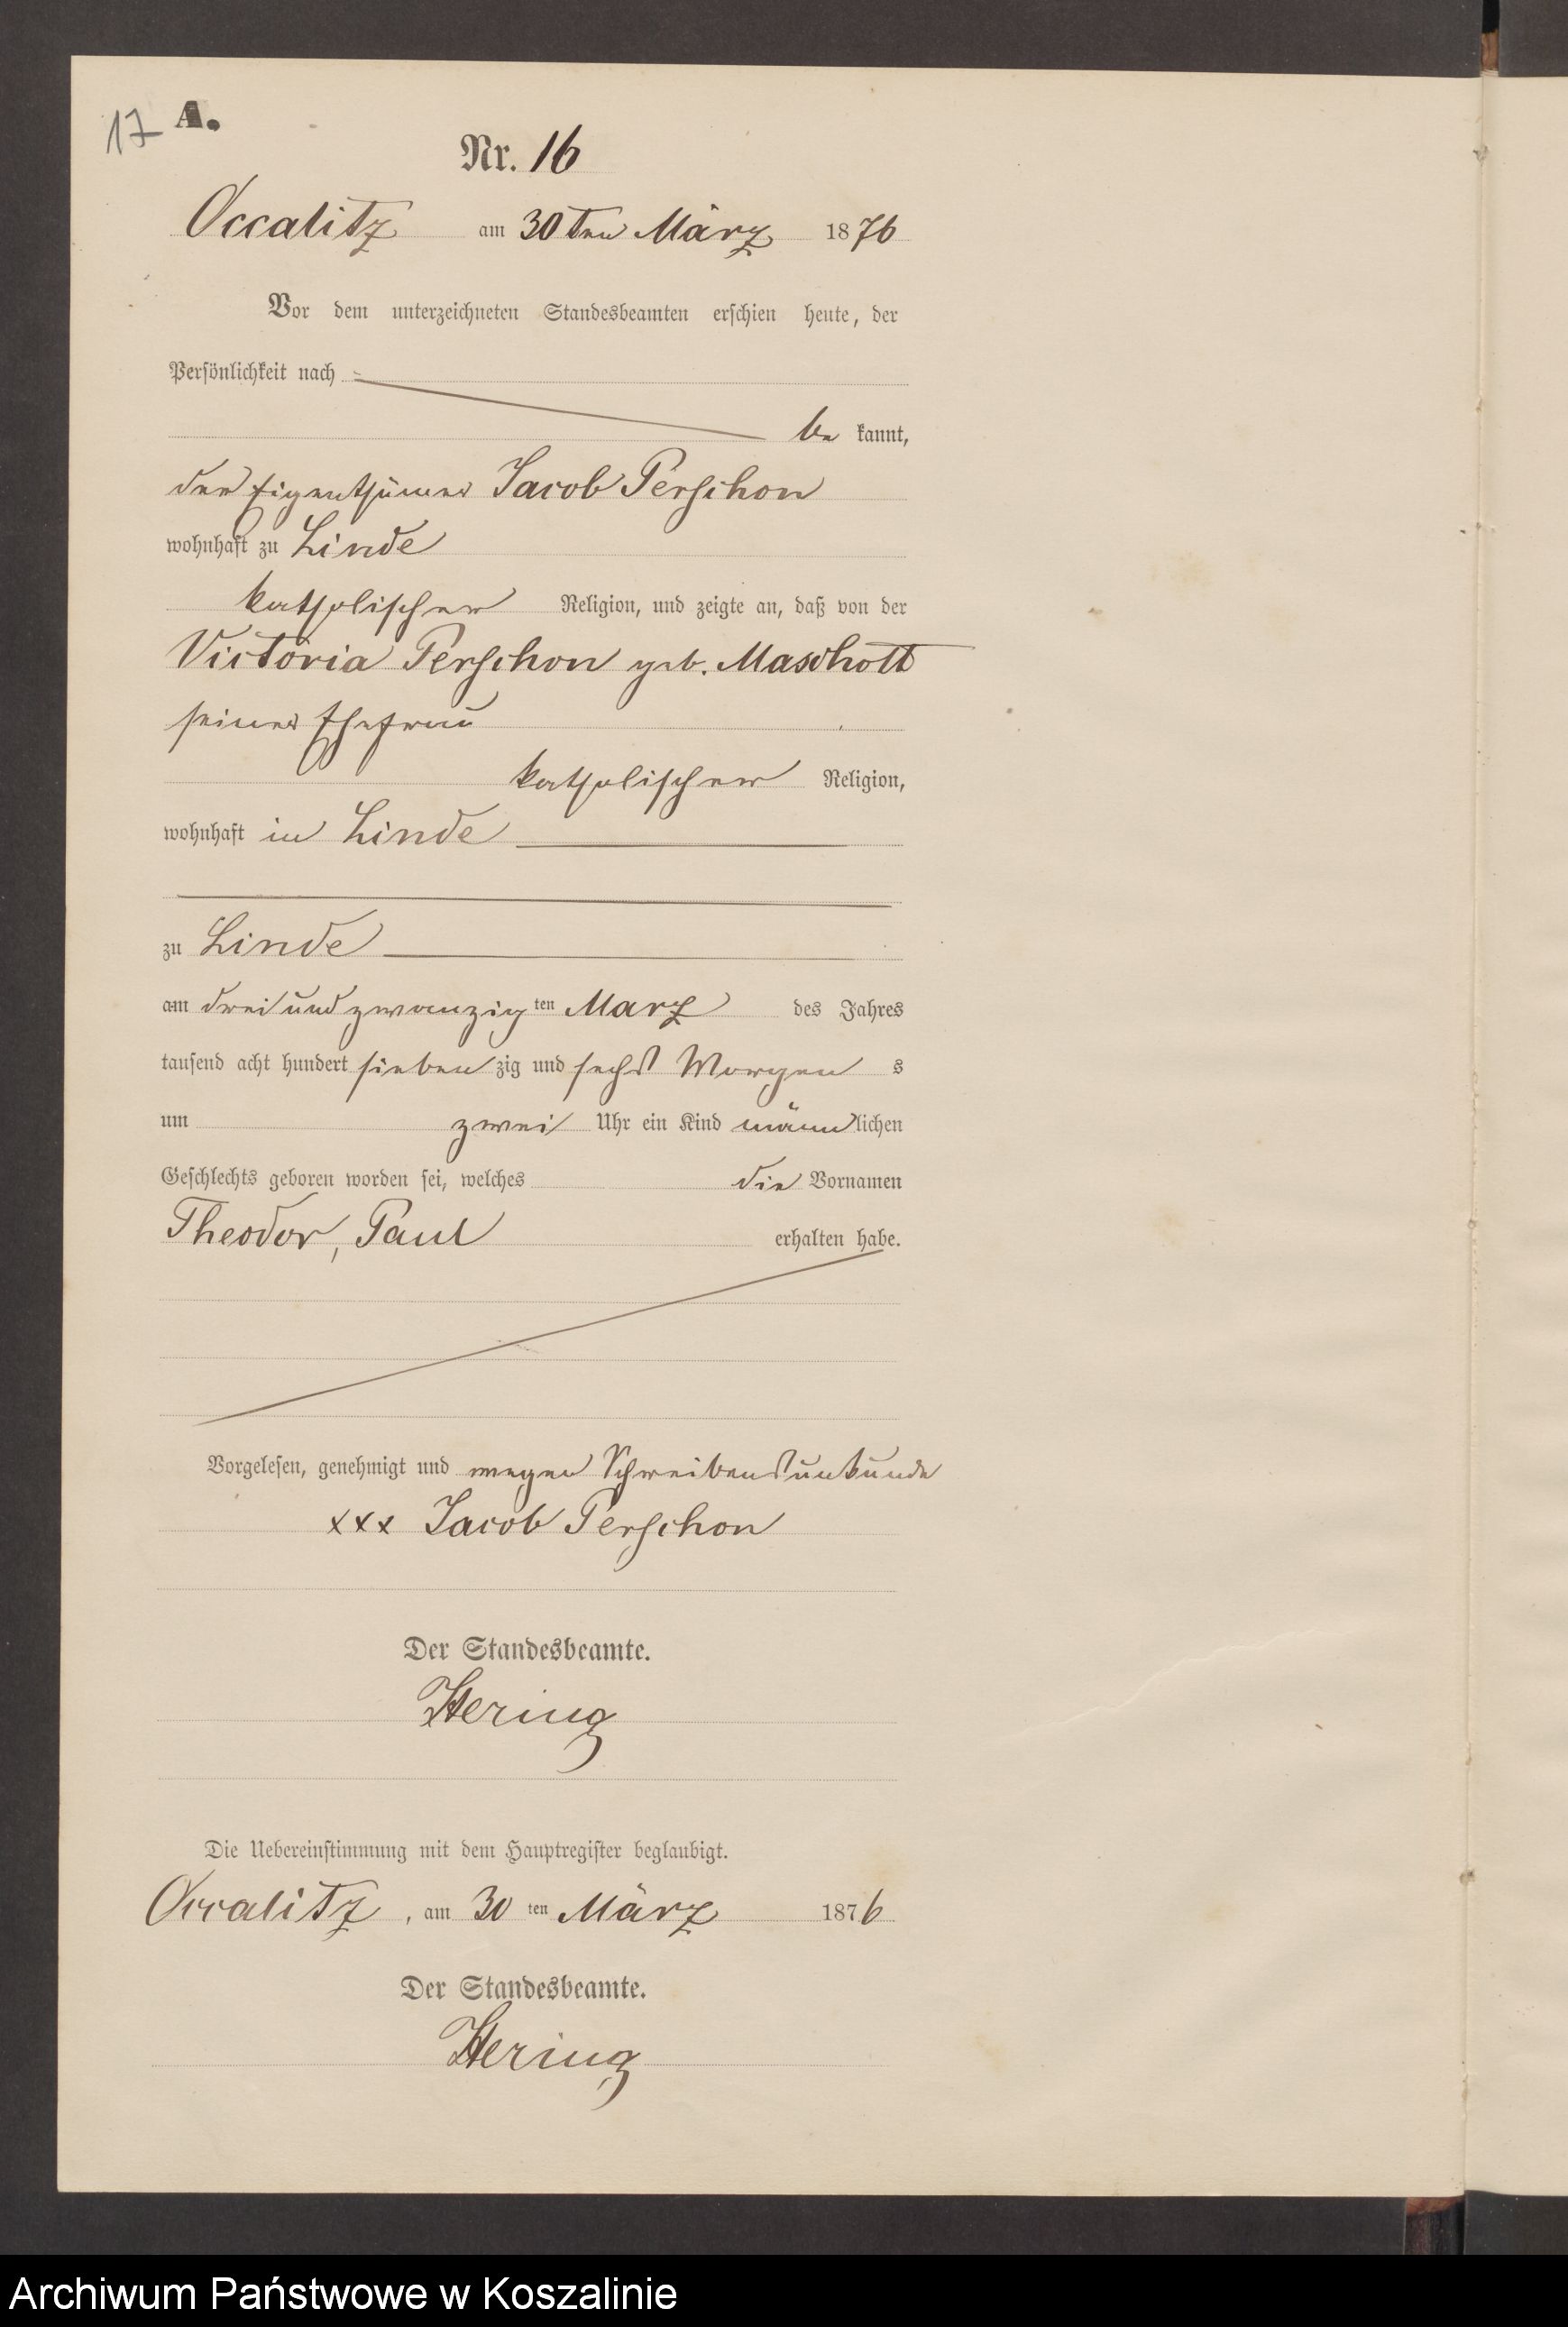 17 A.
Nr. 16
Occalitz am 30ten März 1876
Vor dem unterzeichneten Standesbeamten erschien heute, der
Persönlichkeit nach
be kannt,
der Eigenthümer Jacob Perschon
wohnhaft zu Linde
katholischer Religion, und zeigte an, daß von der
Victoria Perschon geb. Maschott
seiner Ehefrau
katholischer Religion,
wohnhaft in Linde
zu Linde
am drei und zwanzig ten Marz des Jahres
tausend acht hundert sieben zig und sechs Morgen s
um zwei Uhr ein Kind männlichen
Geschlechts geboren worden sei, welches die Vornamen
Theodor, Paul erhalten habe.
Vorgelesen, genehmigt und wegen Schreibensunkunde
xxx Jacob Perschon
Der Standesbeamte.
Hering
Die Uebereinstimmung mit dem Hauptregister beglaubigt.
Occalitz, am 30 ten März 1876
Der Standesbeamte.
Hering
Archiwum Państwowe w Koszalinie